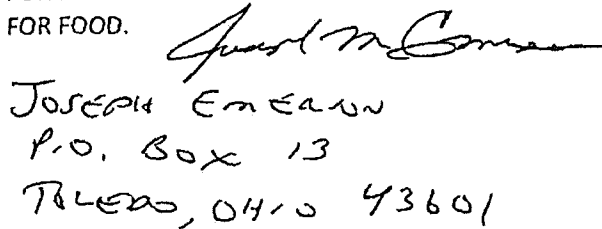 FOR FOOD.
JOSEPH
P.O. BOX 13
TOLEDO, OHIO 43601